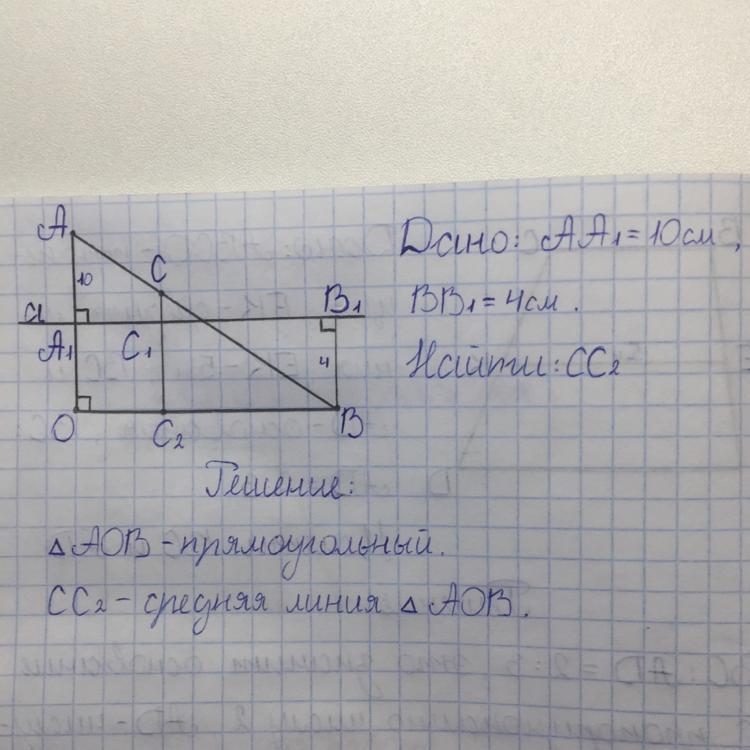 A
10
C
a
B₁
A₁
C₁
4
O
C₂
B
Дано: AA₁ = 10 см,
BB₁ = 4 см.
Найти: CC₂
Решение:
△ AOB - прямоугольный.
CC₂ - средняя линия △ AOB.